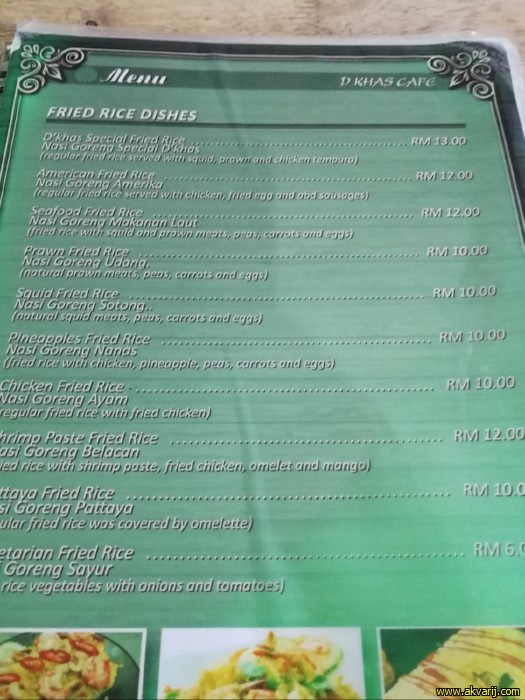 Menu
D KHAS CAFE
FRIED RICE DISHES
D'khas Special Fried Rice ........................................ RM 13.00
Nasi Goreng Special D'khas
(regular fried rice served with squid, prawn and chicken tempura)
American Fried Rice ........................................ RM 12.00
Nasi Goreng Amerika
(regular fried rice served with chicken, fried egg and abd sausages)
Seafood Fried Rice ........................................ RM 12.00
Nasi Goreng Makanan Laut
(fried rice with squid and prawn meats, peas, carrots and eggs)
Prawn Fried Rice ........................................ RM 10.00
Nasi Goreng Udang.
(natural prawn meats, peas, carrots and eggs)
Squid Fried Rice ........................................ RM 10.00
Nasi Goreng Sotong..
(natural squid meats, peas, carrots and eggs)
Pineapples Fried Rice ........................................ RM 10.00
Nasi Goreng Nanas
(fried rice with chicken, pineapple, peas, carrots and eggs)
Chicken Fried Rice ........................................ RM 10.00
Nasi Goreng Ayam
regular fried rice with fried chicken)
hrimp Paste Fried Rice ........................................ RM 12.00
asi Goreng Belacan
ied rice with shrimp paste, fried chicken, omelet and mango)
ttaya Fried Rice ........................................ RM 10.0
si Goreng Pattaya
ular fried rice was covered by omelette)
etarian Fried Rice ........................................ RM 6.0
i Goreng Sayur
rice vegetables with onions and tomatoes)
www.akvarij.com